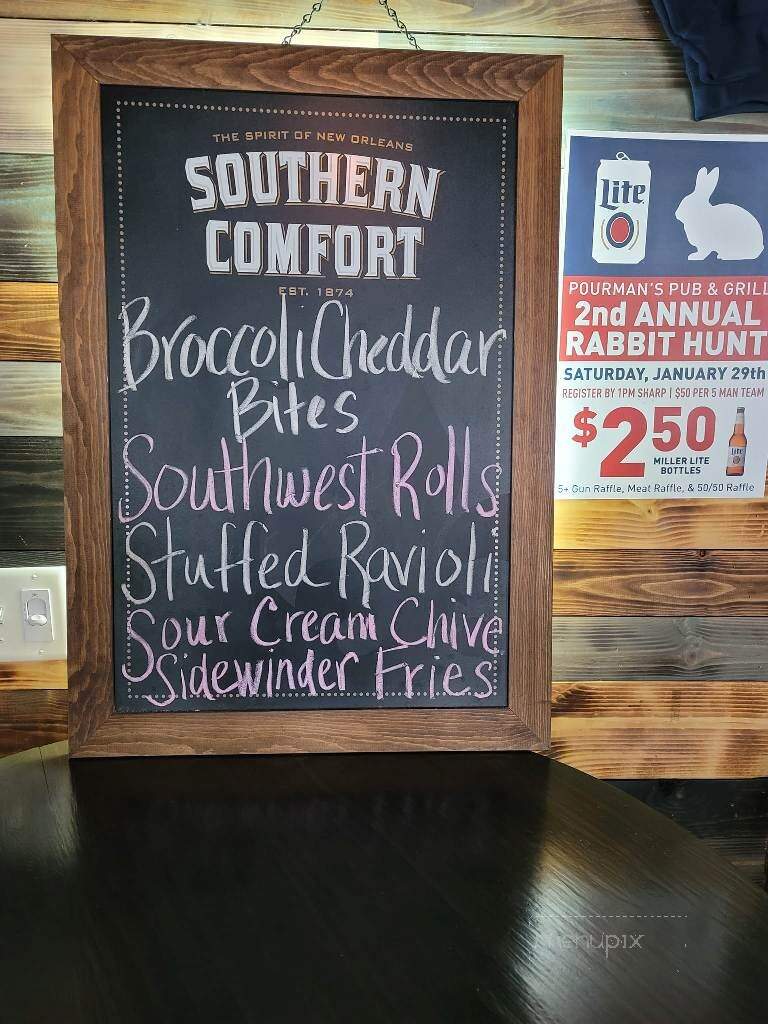 THE SPIRIT OF NEW ORLEANS
SOUTHERN
COMFORT
EST. 1874
Broccoli Cheddar
Bites
Southwest Rolls
Stuffed Ravioli
Sour Cream Chive
Sidewinder Fries
Lite
POURMAN'S PUB & GRILL
2nd ANNUAL
RABBIT HUNT
SATURDAY, JANUARY 29th
REGISTER BY 1PM SHARP | $50 PER 5 MAN TEAM
$250
MILLER LITE
BOTTLES
Lite
5+ Gun Raffle, Meat Raffle, & 50/50 Raffle
menupix